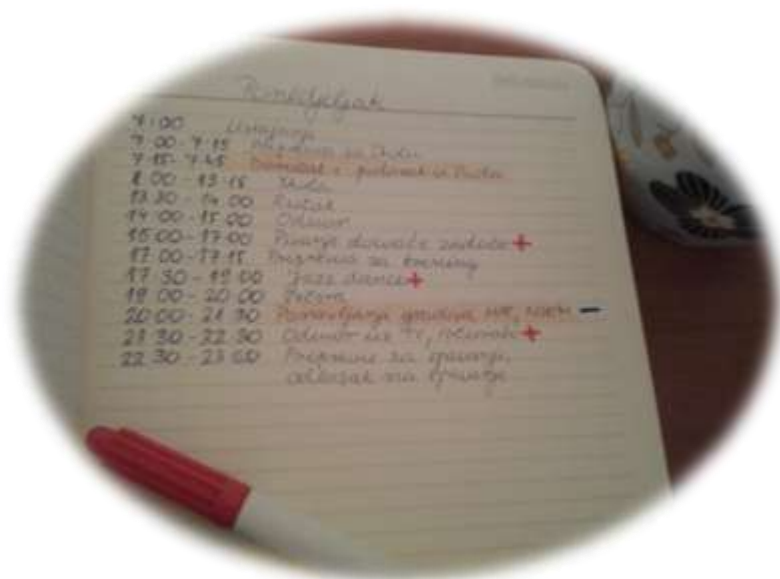 Ponedjeljak
7:00 Ustajanje
7:00 - 7:15
7:15 - 7:45 Doručak i polazak u školu
8:00 - 13:15 Škola
13:30 - 14:00 Ručak
14:00 - 15:00 Odmor
15:00 - 17:00 Pisanje domaće zadaće +
17:00 - 17:15 za trening
17:30 - 19:00 Jazz dance +
19:00 - 20:00 Večera
20:00 - 21:30 Ponavljanje gradiva –
21:30 - 22:30 Odmor uz TV, +
22:30 - 23:00 za spavanje,
odlazak na spavanje